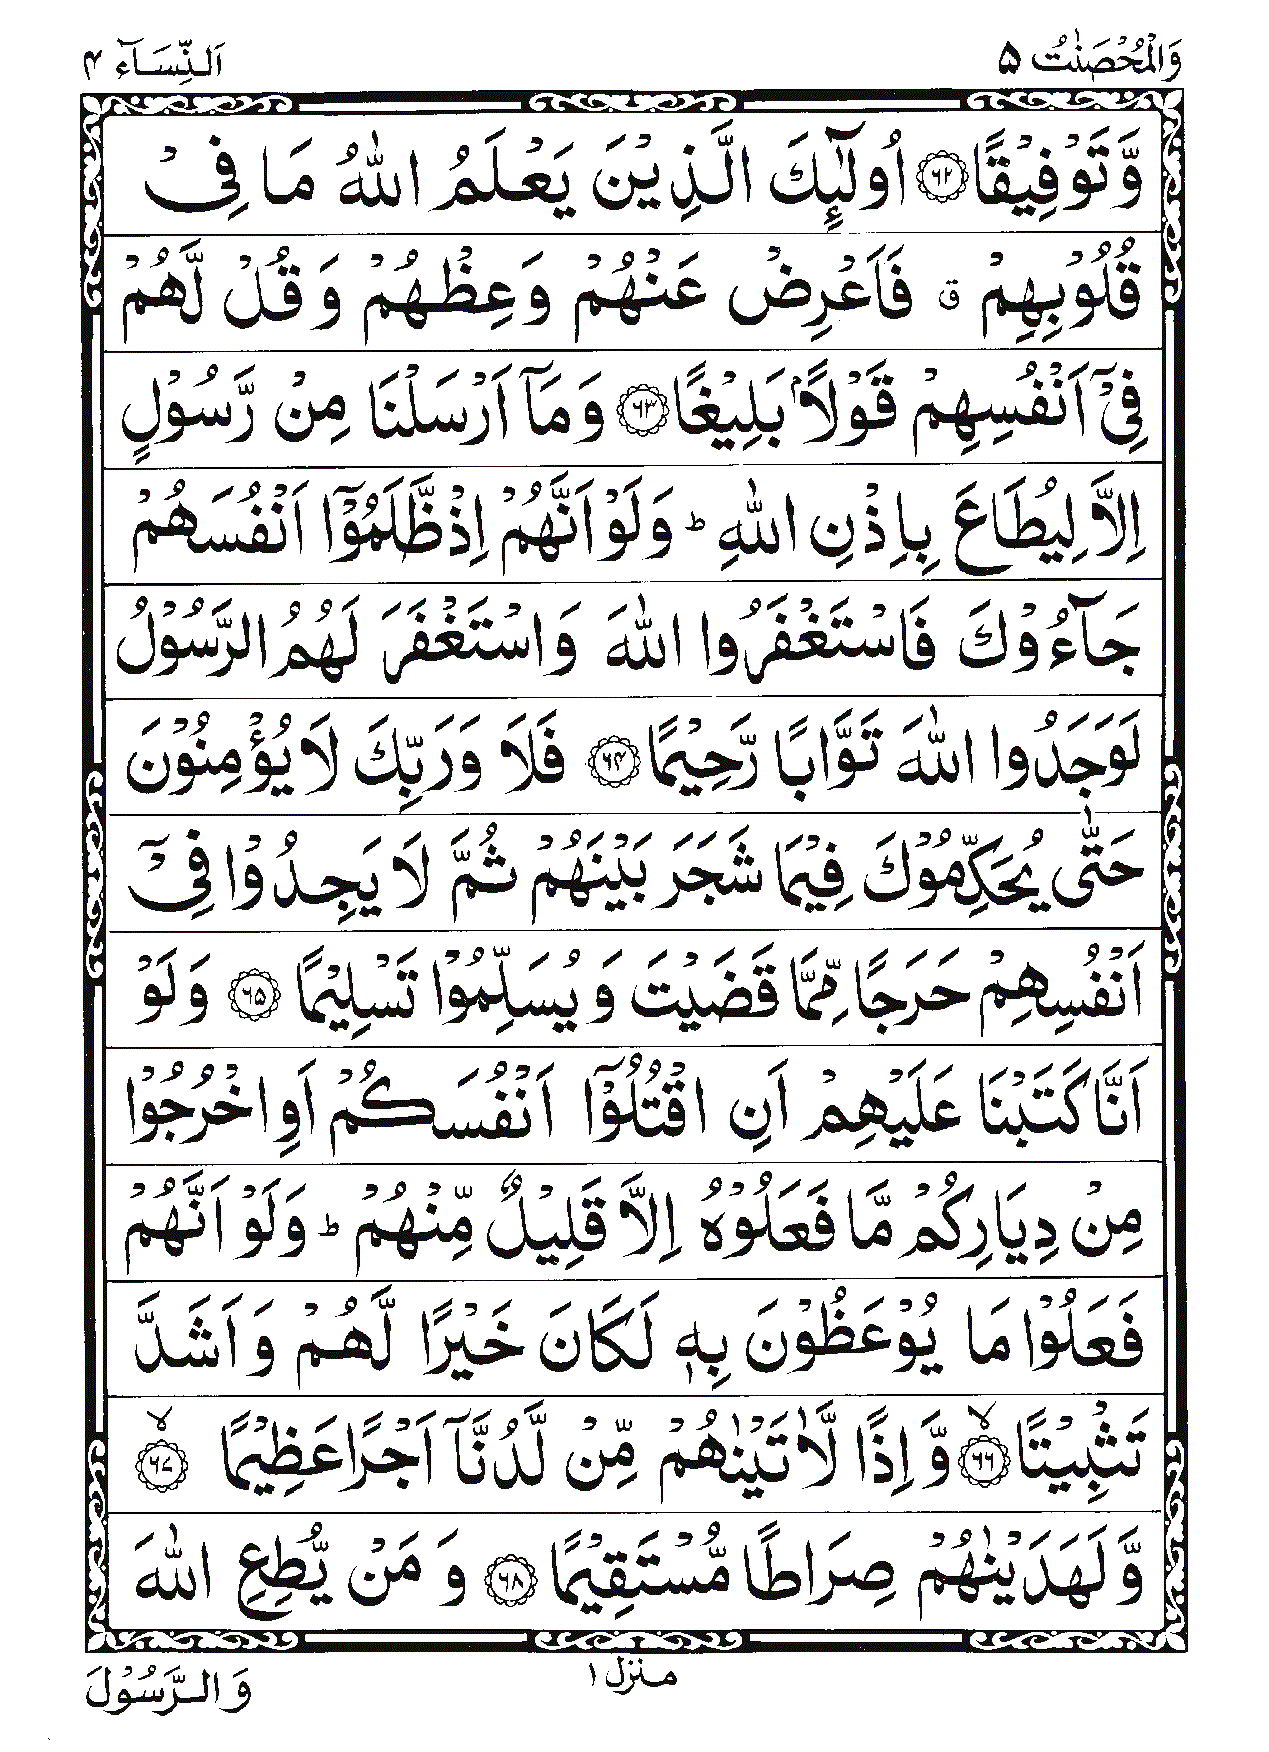 وَالْمُحْصَنٰتُ ۵
اَلنِّسَآء ۴
وَّتَوْفِيْقًا ﴿۶۲﴾ اُولٰٓئِكَ الَّذِيْنَ يَعْلَمُ اللّٰهُ مَا فِىْ
قُلُوْبِهِمْ ق فَاَعْرِضْ عَنْهُمْ وَعِظْهُمْ وَ قُلْ لَّهُمْ
فِىْٓ اَنْفُسِهِمْ قَوْلًاۢ بَلِيْغًا ﴿۶۳﴾ وَمَآ اَرْسَلْنَا مِنْ رَّسُوْلٍ
اِلَّا لِيُطَاعَ بِاِذْنِ اللّٰهِ ط وَلَوْ اَنَّهُمْ اِذْظَّلَمُوْٓا اَنْفُسَهُمْ
جَآءُوْكَ فَاسْتَغْفَرُوا اللّٰهَ وَاسْتَغْفَرَ لَهُمُ الرَّسُوْلُ
لَوَجَدُوا اللّٰهَ تَوَّابًا رَّحِيْمًا ﴿۶۴﴾ فَلَا وَرَبِّكَ لَا يُؤْمِنُوْنَ
حَتّٰى يُحَكِّمُوْكَ فِيْمَا شَجَرَ بَيْنَهُمْ ثُمَّ لَا يَجِدُوْا فِىْٓ
اَنْفُسِهِمْ حَرَجًا مِّمَّا قَضَيْتَ وَ يُسَلِّمُوْا تَسْلِيْمًا ﴿۶۵﴾ وَلَوْ
اَنَّا كَتَبْنَا عَلَيْهِمْ اَنِ اقْتُلُوْٓا اَنْفُسَكُمْ اَوِ اخْرُجُوْا
مِنْ دِيَارِكُمْ مَّا فَعَلُوْهُ اِلَّا قَلِيْلٌ مِّنْهُمْ ط وَلَوْ اَنَّهُمْ
فَعَلُوْا مَا يُوْعَظُوْنَ بِهٖ لَكَانَ خَيْرًا لَّهُمْ وَ اَشَدَّ
تَثْبِيْتًا ﴿۶۶﴾ لا وَّ اِذًا لَّاٰتَيْنٰهُمْ مِّنْ لَّدُنَّآ اَجْرًا عَظِيْمًا ﴿۶۷﴾ لا
وَّ لَهَدَيْنٰهُمْ صِرَاطًا مُّسْتَقِيْمًا ﴿۶۸﴾ وَ مَنْ يُّطِعِ اللّٰهَ
منزل ۱
وَ الرَّسُوْلَ